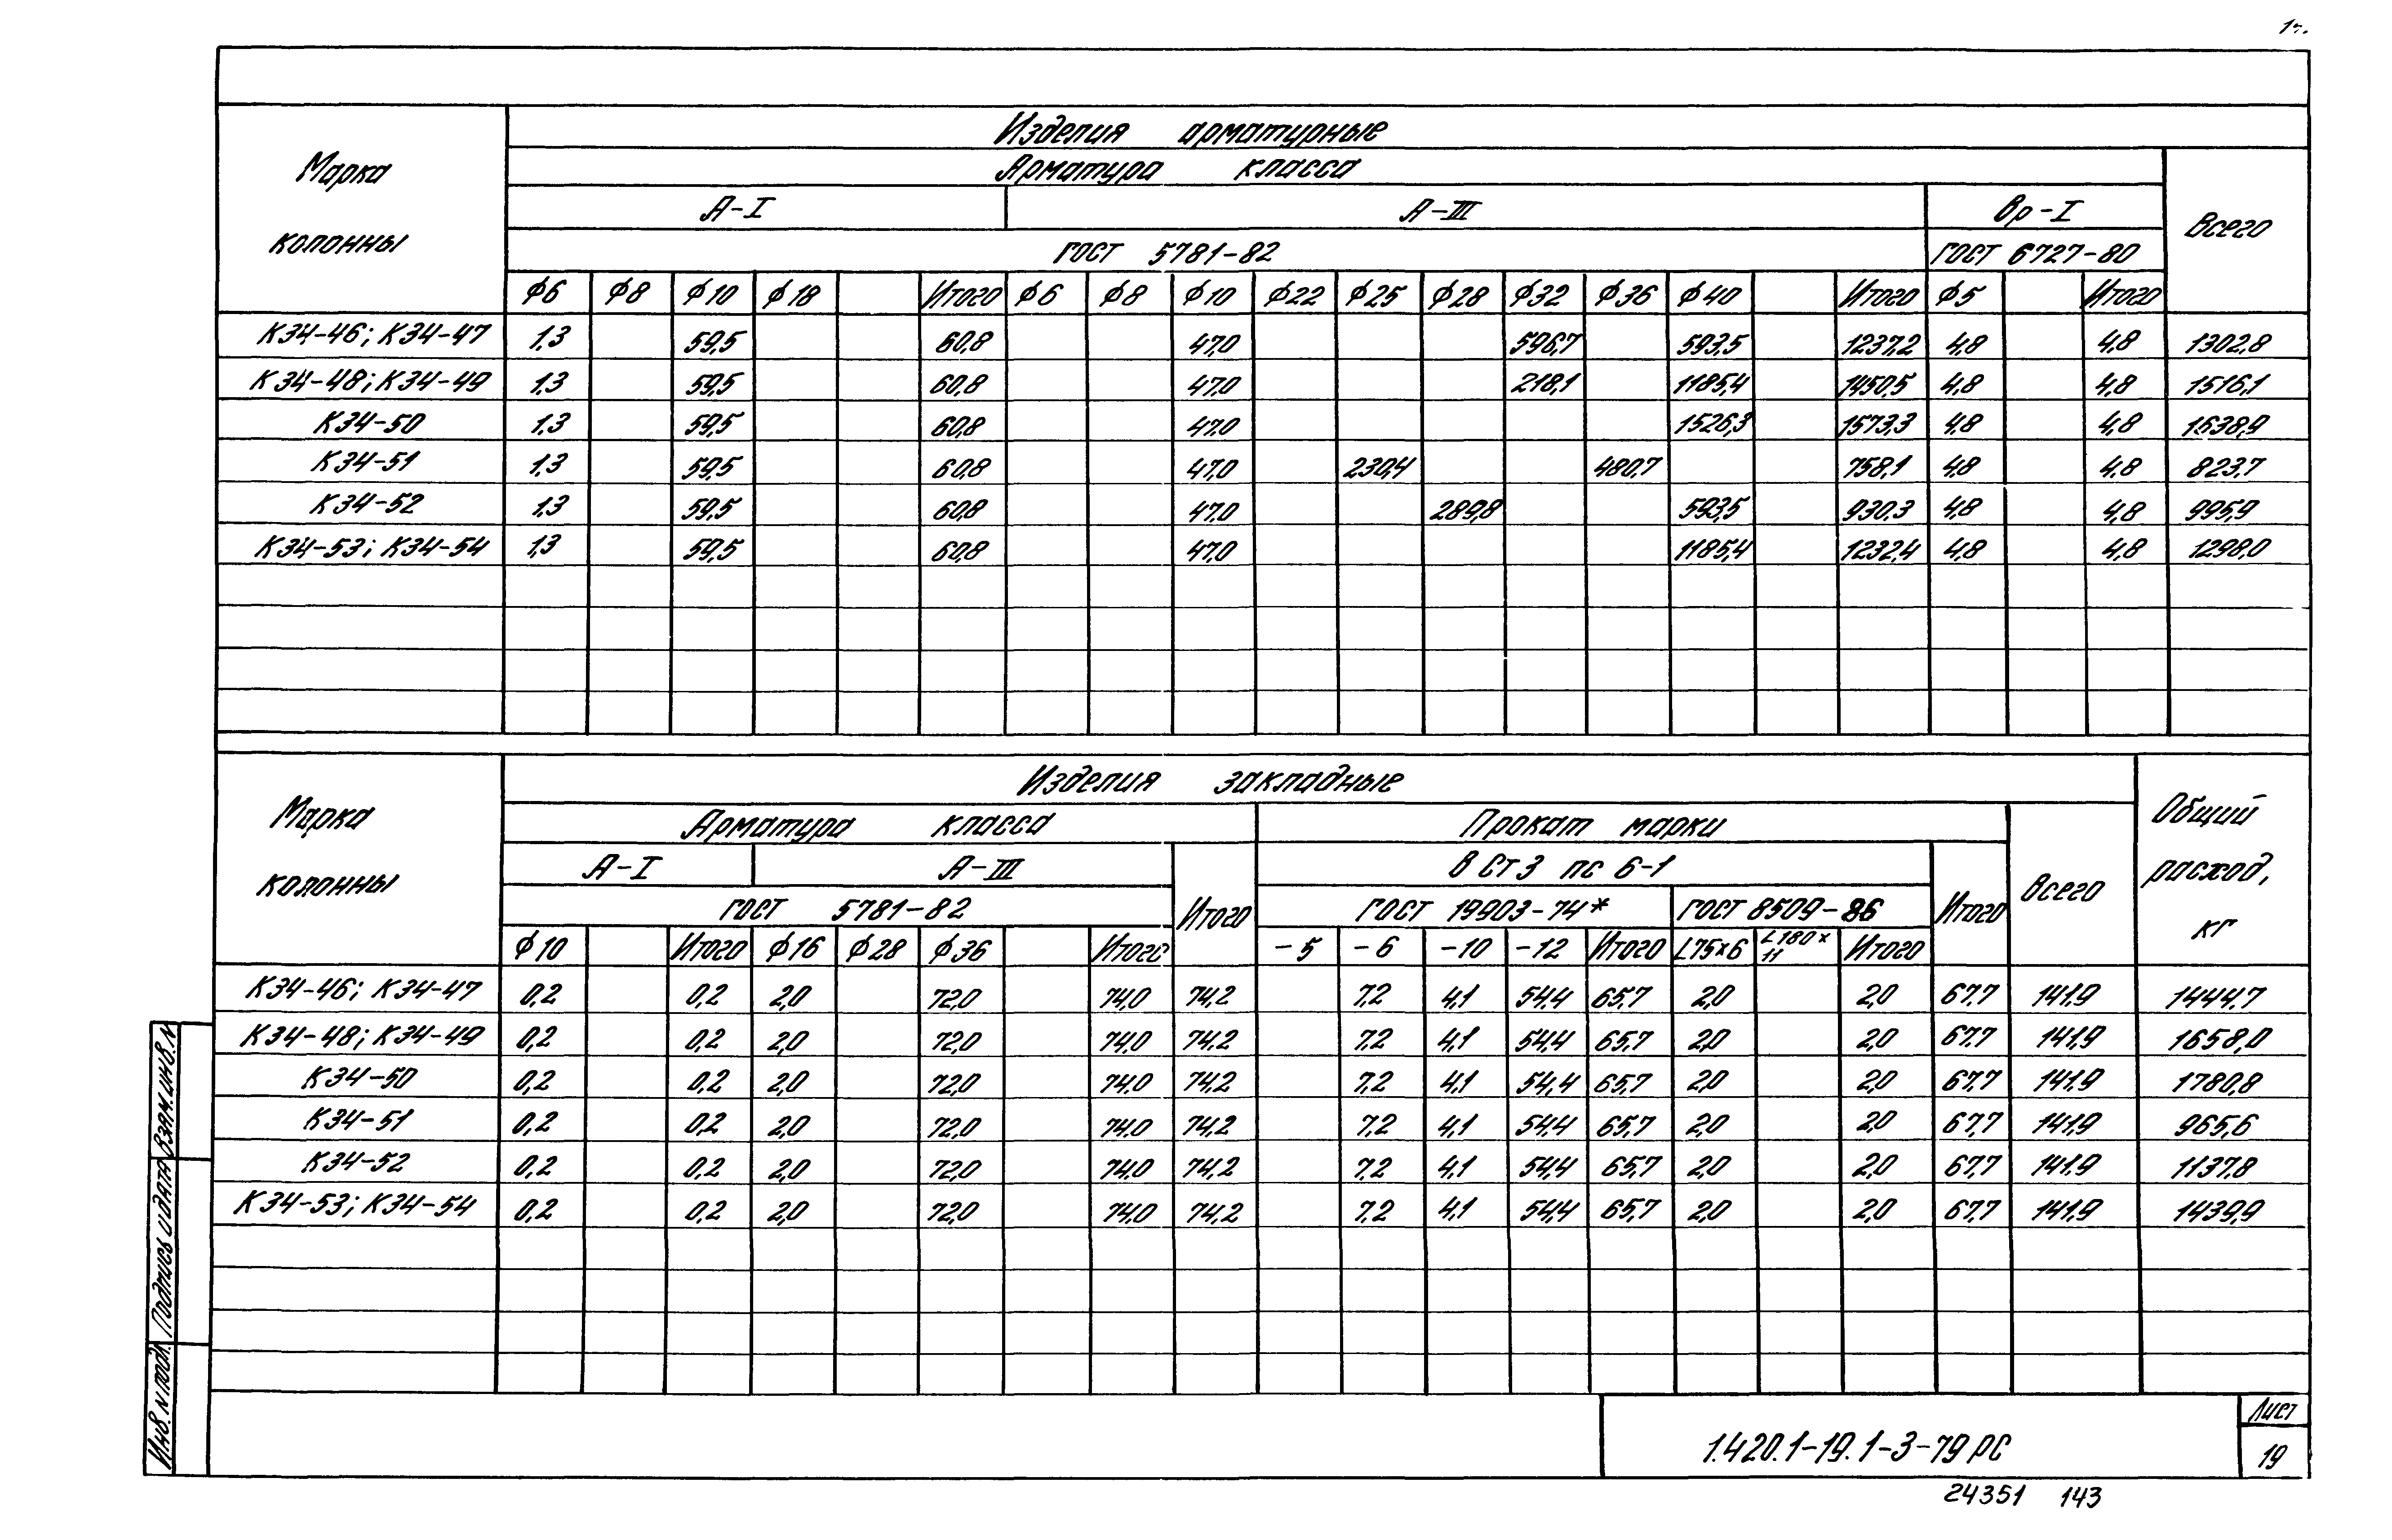 Изделия арматурные
Марка колонны
Арматура класса
Всего
А-I А-III Вр-I
ГОСТ 5781-82 ГОСТ 6727-80
ϕ6 ϕ8 ϕ10 ϕ18 Итого ϕ6 ϕ8 ϕ10 ϕ22 ϕ25 ϕ28 ϕ32 ϕ36 ϕ40 Итого ϕ5 Итого
К34-46; К34-47 1,3 59,5 60,8 47,0 596,7 593,5 1237,2 4,8 4,8 1302,8
К34-48; К34-49 1,3 59,5 60,8 47,0 218,1 1185,4 1450,5 4,8 4,8 1516,1
К34-50 1,3 59,5 60,8 47,0 1526,3 1573,3 4,8 4,8 1638,9
К34-51 1,3 59,5 60,8 47,0 230,4 480,7 758,1 4,8 4,8 823,7
К34-52 1,3 59,5 60,8 47,0 289,8 593,5 930,3 4,8 4,8 995,9
К34-53; К34-54 1,3 59,5 60,8 47,0 1185,4 1232,4 4,8 4,8 1298,0
Изделия закладные
Марка колонны
Общий расход, кг
Арматура класса Прокат марки
Всего
А-I А-III Итого В Ст3 пс 6-1 Итого
ГОСТ 5781-82 ГОСТ 19903-74* ГОСТ 8509-86
ϕ10 Итого ϕ16 ϕ28 ϕ36 Итого -5 -6 -10 -12 Итого L75×6 L180×11 Итого
К34-46; К34-47 0,2 0,2 2,0 72,0 74,0 74,2 7,2 4,1 54,4 65,7 2,0 2,0 67,7 141,9 1444,7
К34-48; К34-49 0,2 0,2 2,0 72,0 74,0 74,2 7,2 4,1 54,4 65,7 2,0 2,0 67,7 141,9 1658,0
К34-50 0,2 0,2 2,0 72,0 74,0 74,2 7,2 4,1 54,4 65,7 2,0 2,0 67,7 141,9 1780,8
К34-51 0,2 0,2 2,0 72,0 74,0 74,2 7,2 4,1 54,4 65,7 2,0 2,0 67,7 141,9 965,6
К34-52 0,2 0,2 2,0 72,0 74,0 74,2 7,2 4,1 54,4 65,7 2,0 2,0 67,7 141,9 1137,8
К34-53; К34-54 0,2 0,2 2,0 72,0 74,0 74,2 7,2 4,1 54,4 65,7 2,0 2,0 67,7 141,9 1439,9
Взам.инв.N
Подпись и дата
Инв. N подл.
1.420.1-19.1-3-79 РС
Лист
19
24351 143